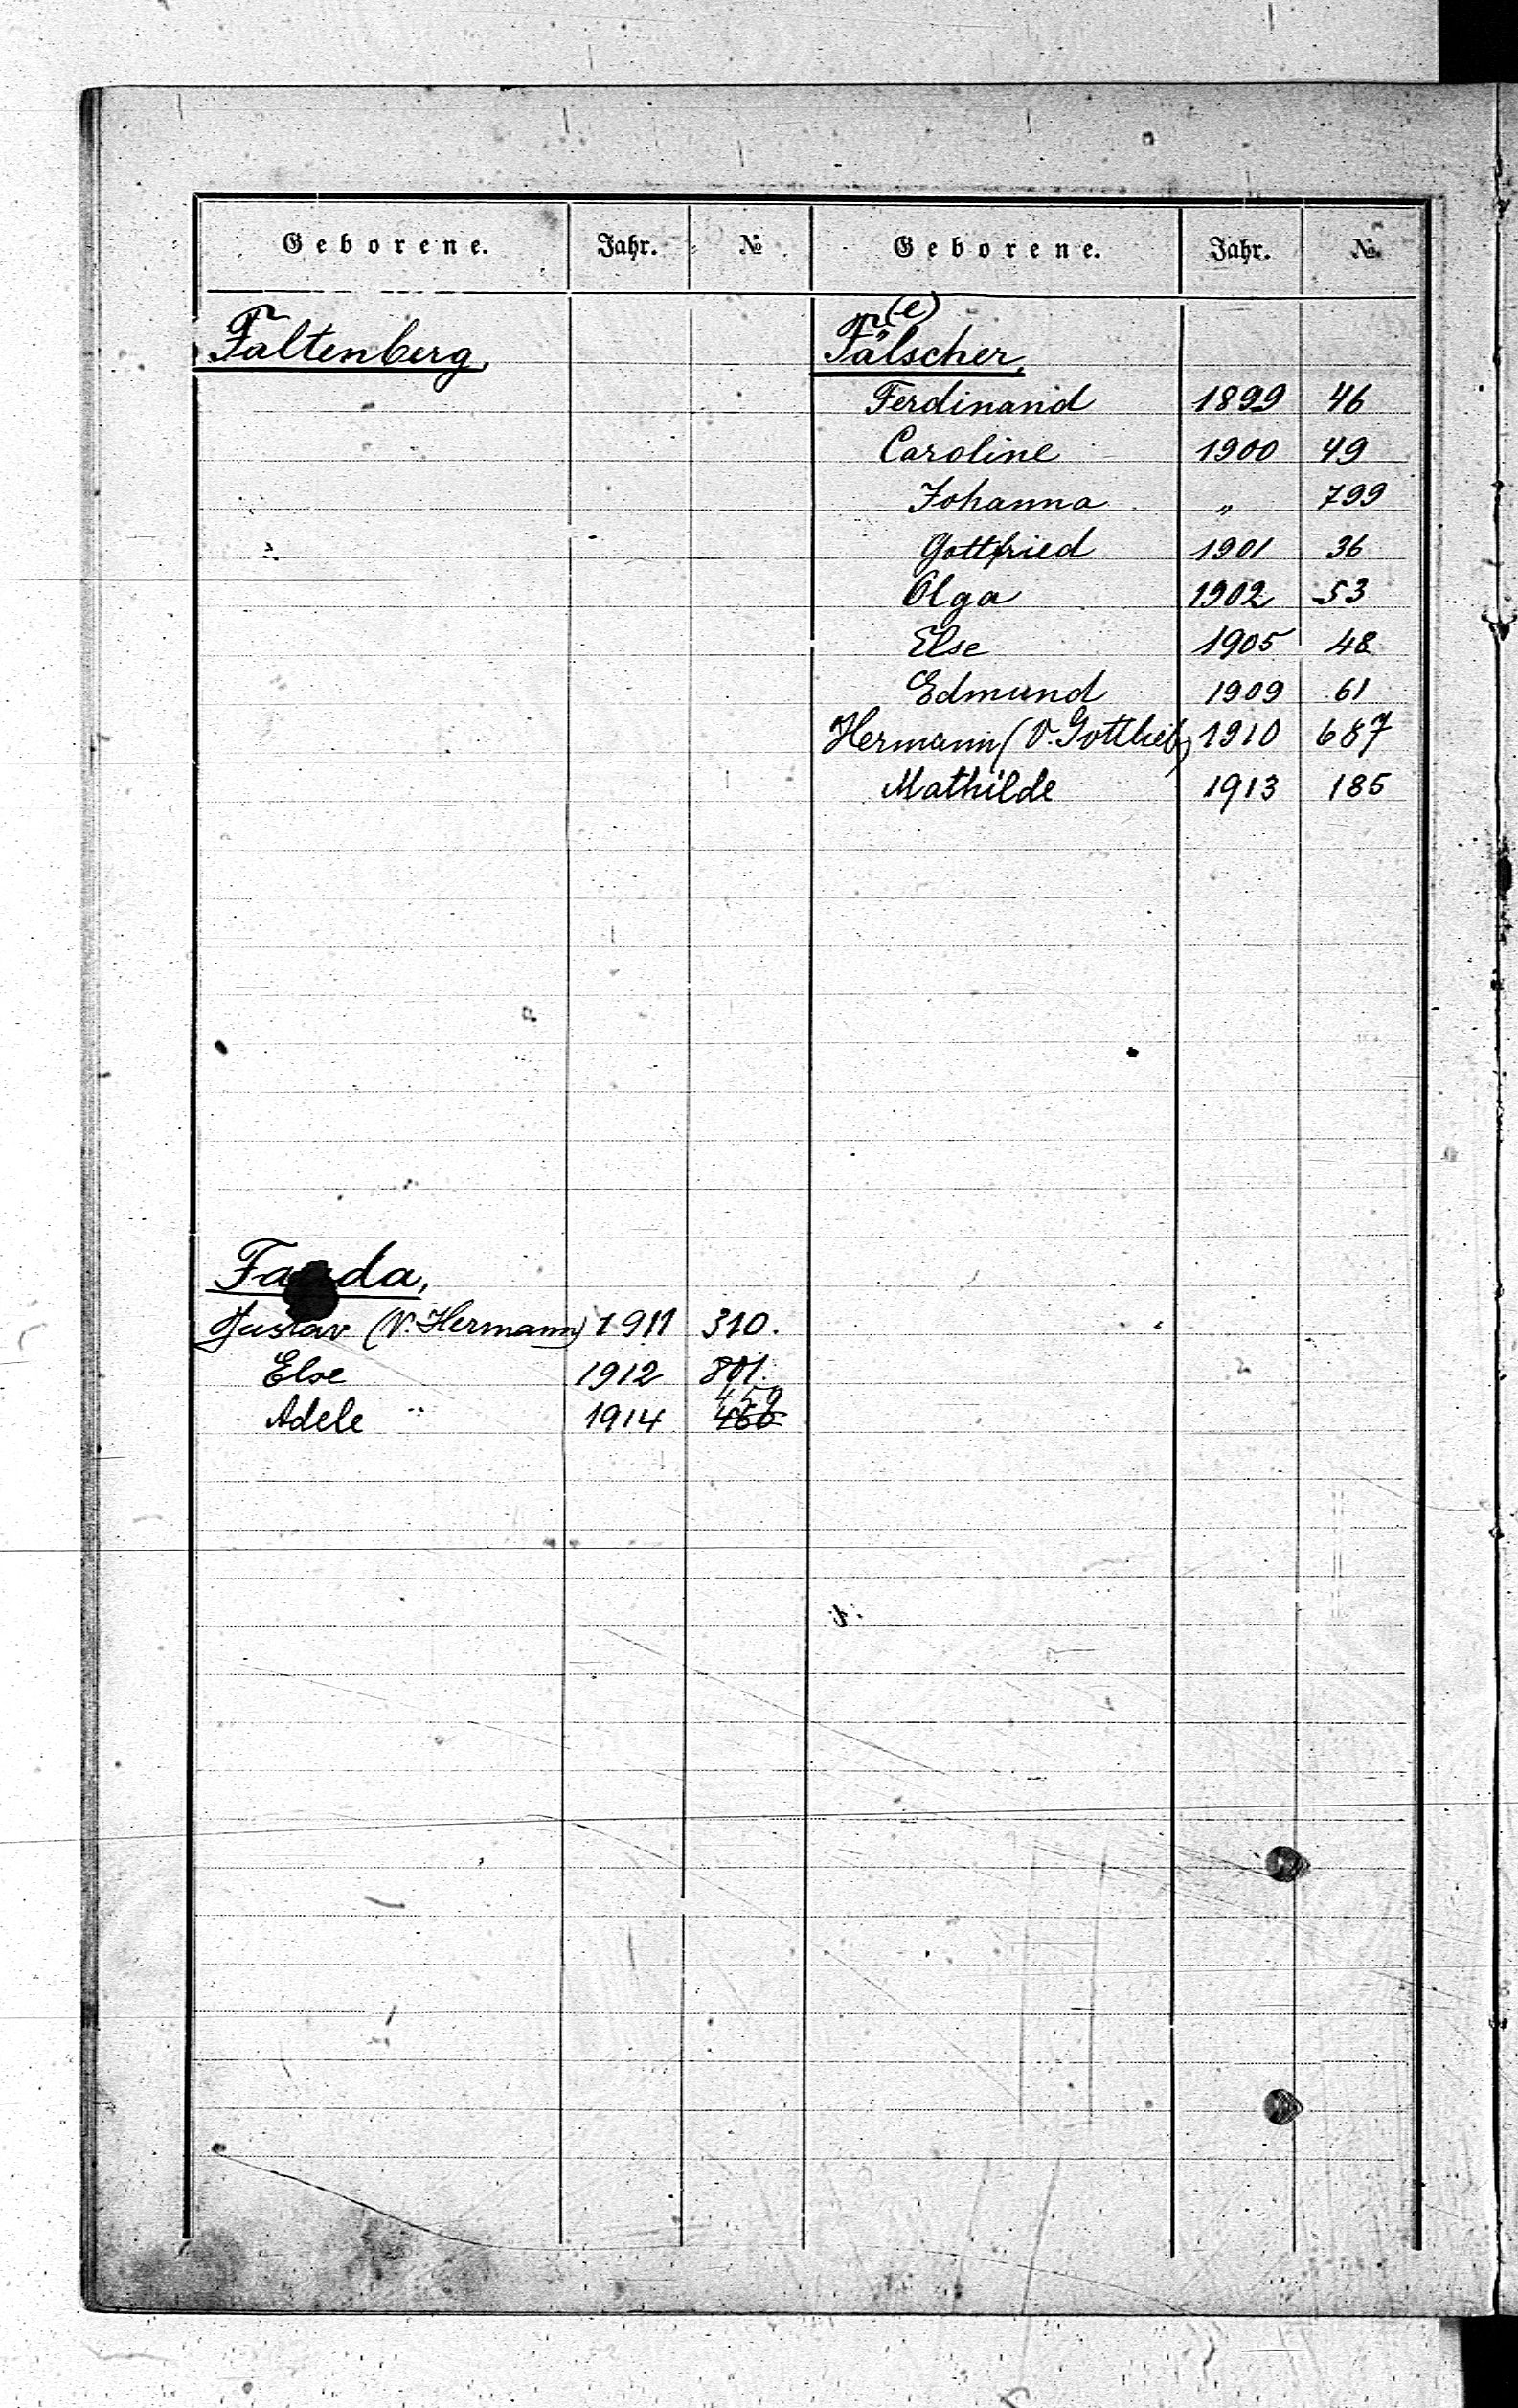 Geborene. Jahr. №
Faltenberg,
Gustav (V. Hermann) 1911 310.
Else 1912 801.
Adele " 1914 459
Geborene. Jahr. №
(e)
Fälscher,
Ferdinand 1899 46
Caroline 1900 49
Johanna " 799
Gottfried 1901 36
Olga 1902 53
Else 1905 48
Edmund 1909 61
Hermann (V. Gottlieb) 1910 687
Mathilde 1913 185